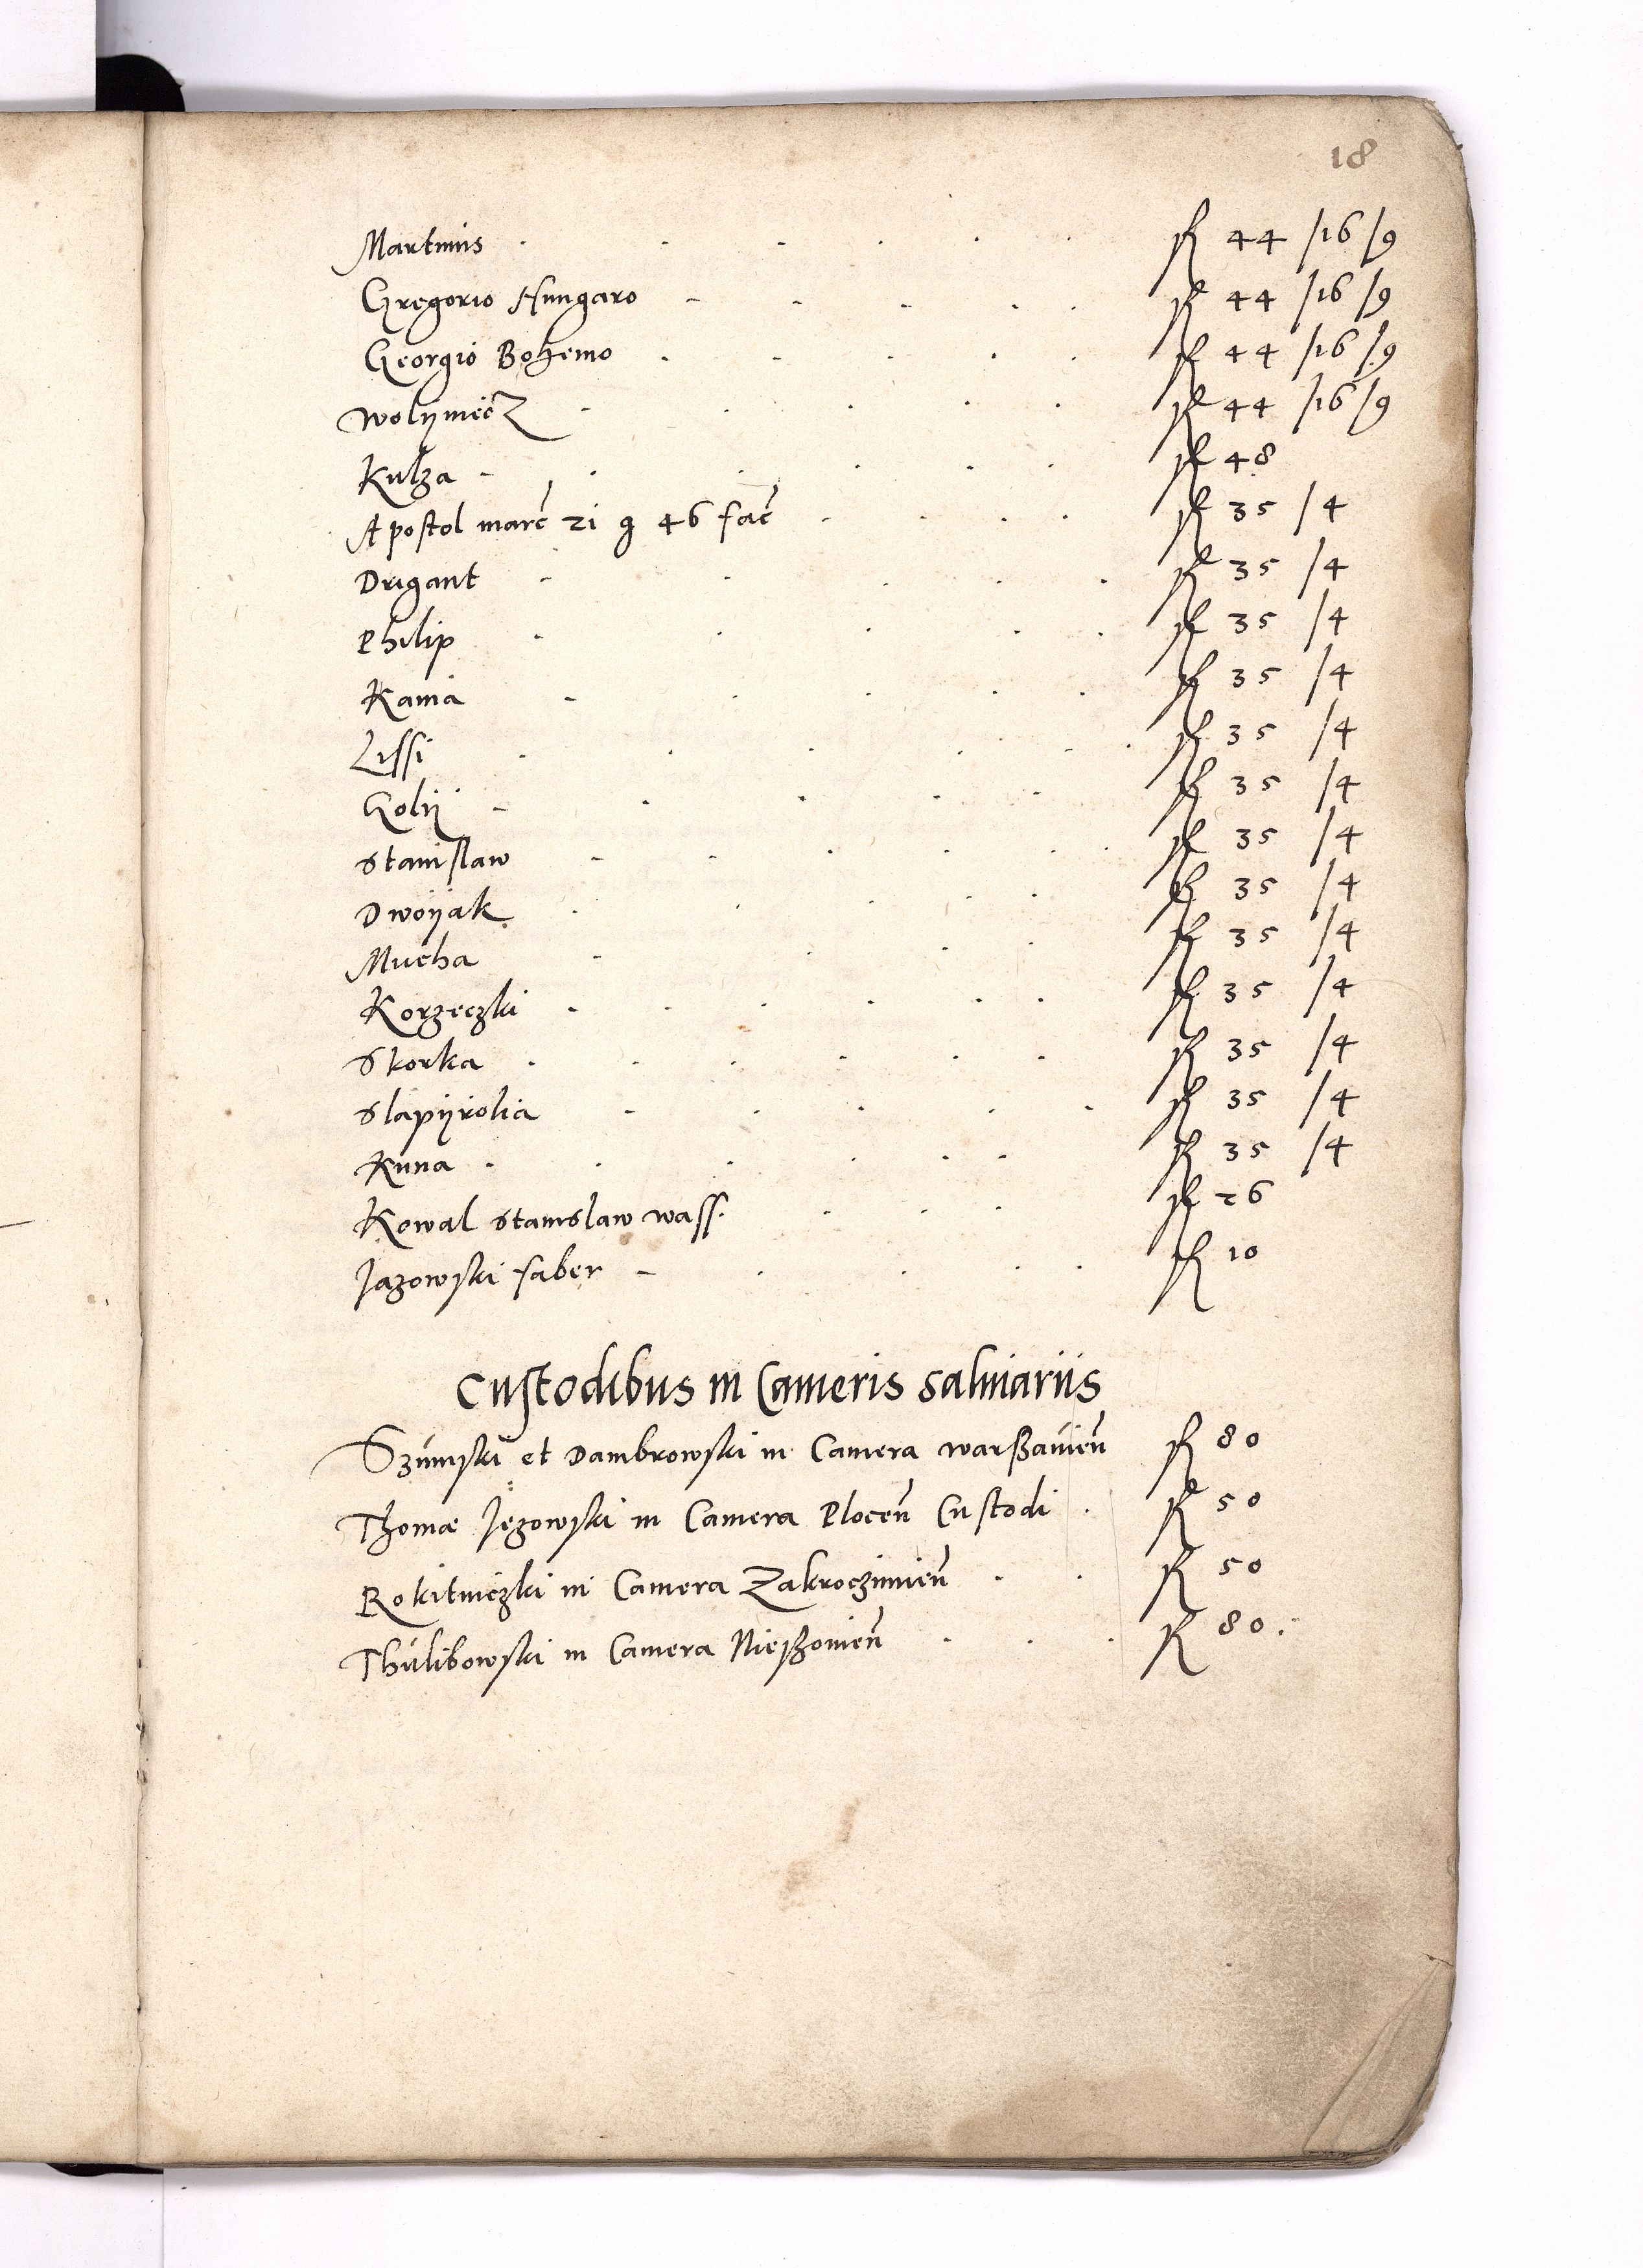 18
Martinus . . . . . . fl 44 /16 /9
Gregorio Hungaro - . . . . fl 44 /16 /9
Georgio Bohemo . . . . . fl 44 /16 /9
Wolyniecz . . . . . fl 44 /16 /9
Kulza - . . . . . fl 48
Apostol marc 21 g 46 fac . . . . fl 35 /4
Drigant - . . . . fl 35 /4
Philip . . . . . fl 35 /4
Kania - . . . . fl 35 /4
Lissi . . . . . . fl 35 /4
Golÿ - . . . . fl 35 /4
Stanislaw - . . . . . fl 35 /4
Dwoÿak . . . . fl 35 /4
Mucha . . . . fl 35 /4
Korzeczki . . . . . . fl 35 /4
Skorka . . . . . . fl 35 /4
Slapÿrolia . . . . . fl 35 /4
Kuna . . . . . . fl 35 /4
Kowal Stanislaw wass. . . . fl 26
Jazowski faber - . . . . fl 10
Custodibus in Cameris salinariis
Szumski et Dambrowski in Camera warßavień fl 80
Thomæ Jezowski in Camera Ploceń Custodi . fl 50
Rokitniczki in Camera Zakroczimień . . fl 50
Thulibowski in Camera Nießowień . . . fl 80.